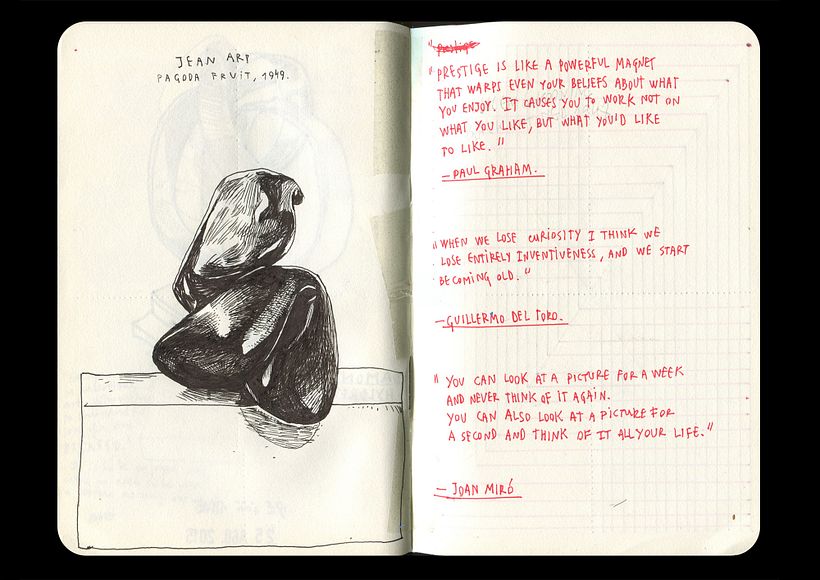 JEAN ARP
PAGODA FRUIT, 1949.
"Prestige
"PRESTIGE IS LIKE A POWERFUL MAGNET
THAT WARPS EVEN YOUR BELIEFS ABOUT WHAT
YOU ENJOY. IT CAUSES YOU TO WORK NOT ON
WHAT YOU LIKE, BUT WHAT YOU'D LIKE
TO LIKE."
— PAUL GRAHAM.
"WHEN WE LOSE CURIOSITY I THINK WE
LOSE ENTIRELY INVENTIVENESS, AND WE START
BECOMING OLD."
— GUILLERMO DEL TORO.
"YOU CAN LOOK AT A PICTURE FOR A WEEK
AND NEVER THINK OF IT AGAIN.
YOU CAN ALSO LOOK AT A PICTURE FOR
A SECOND AND THINK OF IT ALL YOUR LIFE."
— JOAN MIRÓ